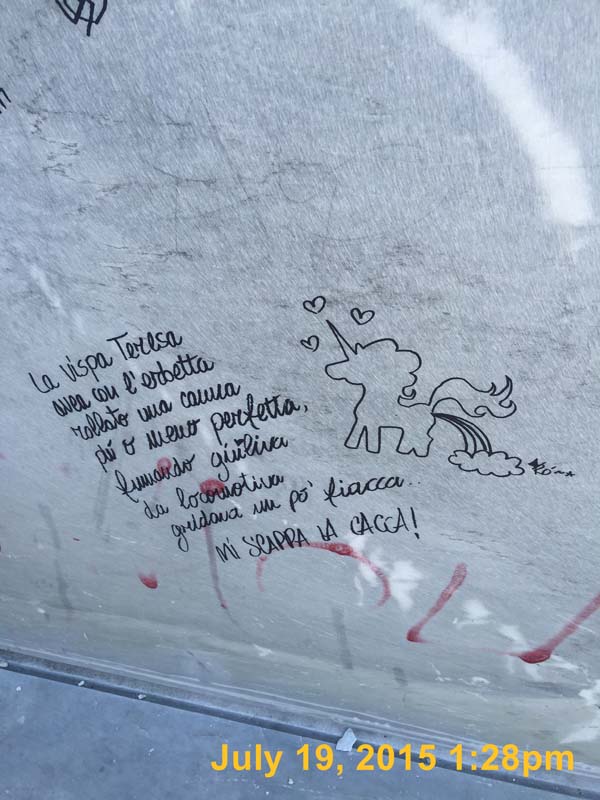 La vispa Teresa
avea con l'erbetta
rollato una canna
più o meno perfetta,
fumando giuliva
da locomotiva
gridava un po' fiacca..
MI SCAPPA LA CACCA!
July 19, 2015 1:28pm